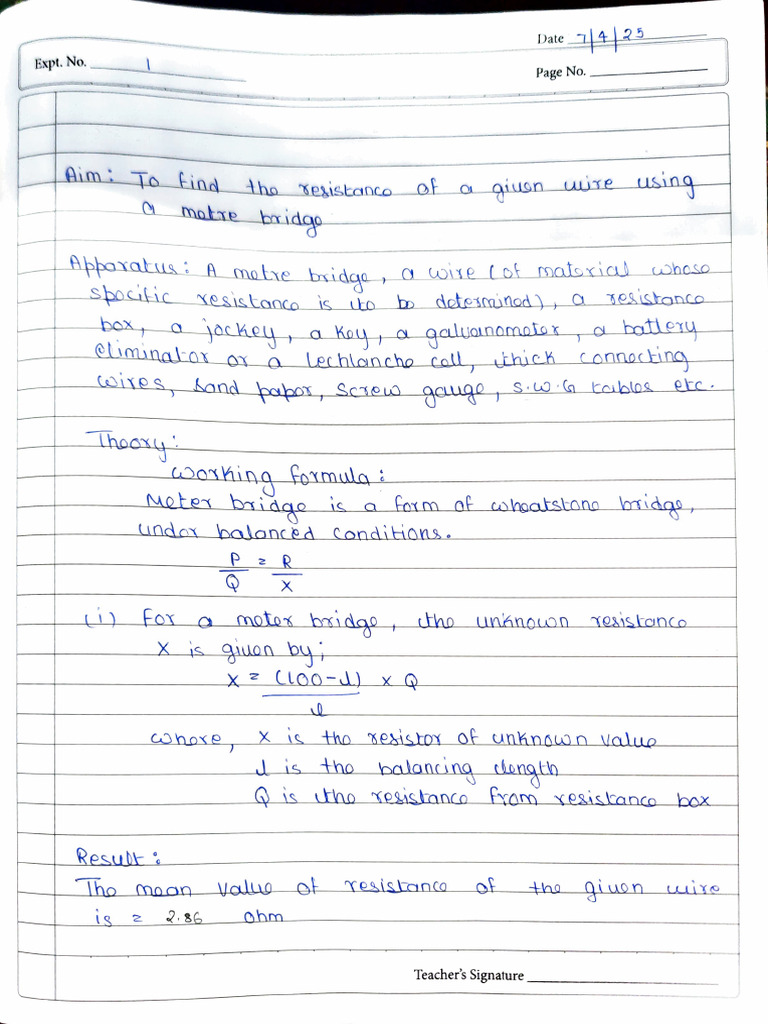 Date 7/4/25
Expt. No. 1
Page No.
Aim: To find the resistance of a given wire using
a metre bridge
Apparatus: A metre bridge, a wire (of material whose
specific resistance is to be determined), a resistance
box, a jockey, a key, a galvanometer, a battery
eliminator or a lechlanche cell, thick connecting
wires, sand paper, screw gauge, s.w.G tables etc.
Theory:
Working formula:
Meter bridge is a form of wheatstone bridge,
under balanced conditions.
P/Q = R/X
(i) For a meter bridge, the unknown resistance
X is given by;
X = (100-l)/l x Q
where, X is the resistor of unknown value
l is the balancing length
Q is the resistance from resistance box
Result:
The mean value of resistance of the given wire
is = 2.86 ohm
Teacher's Signature